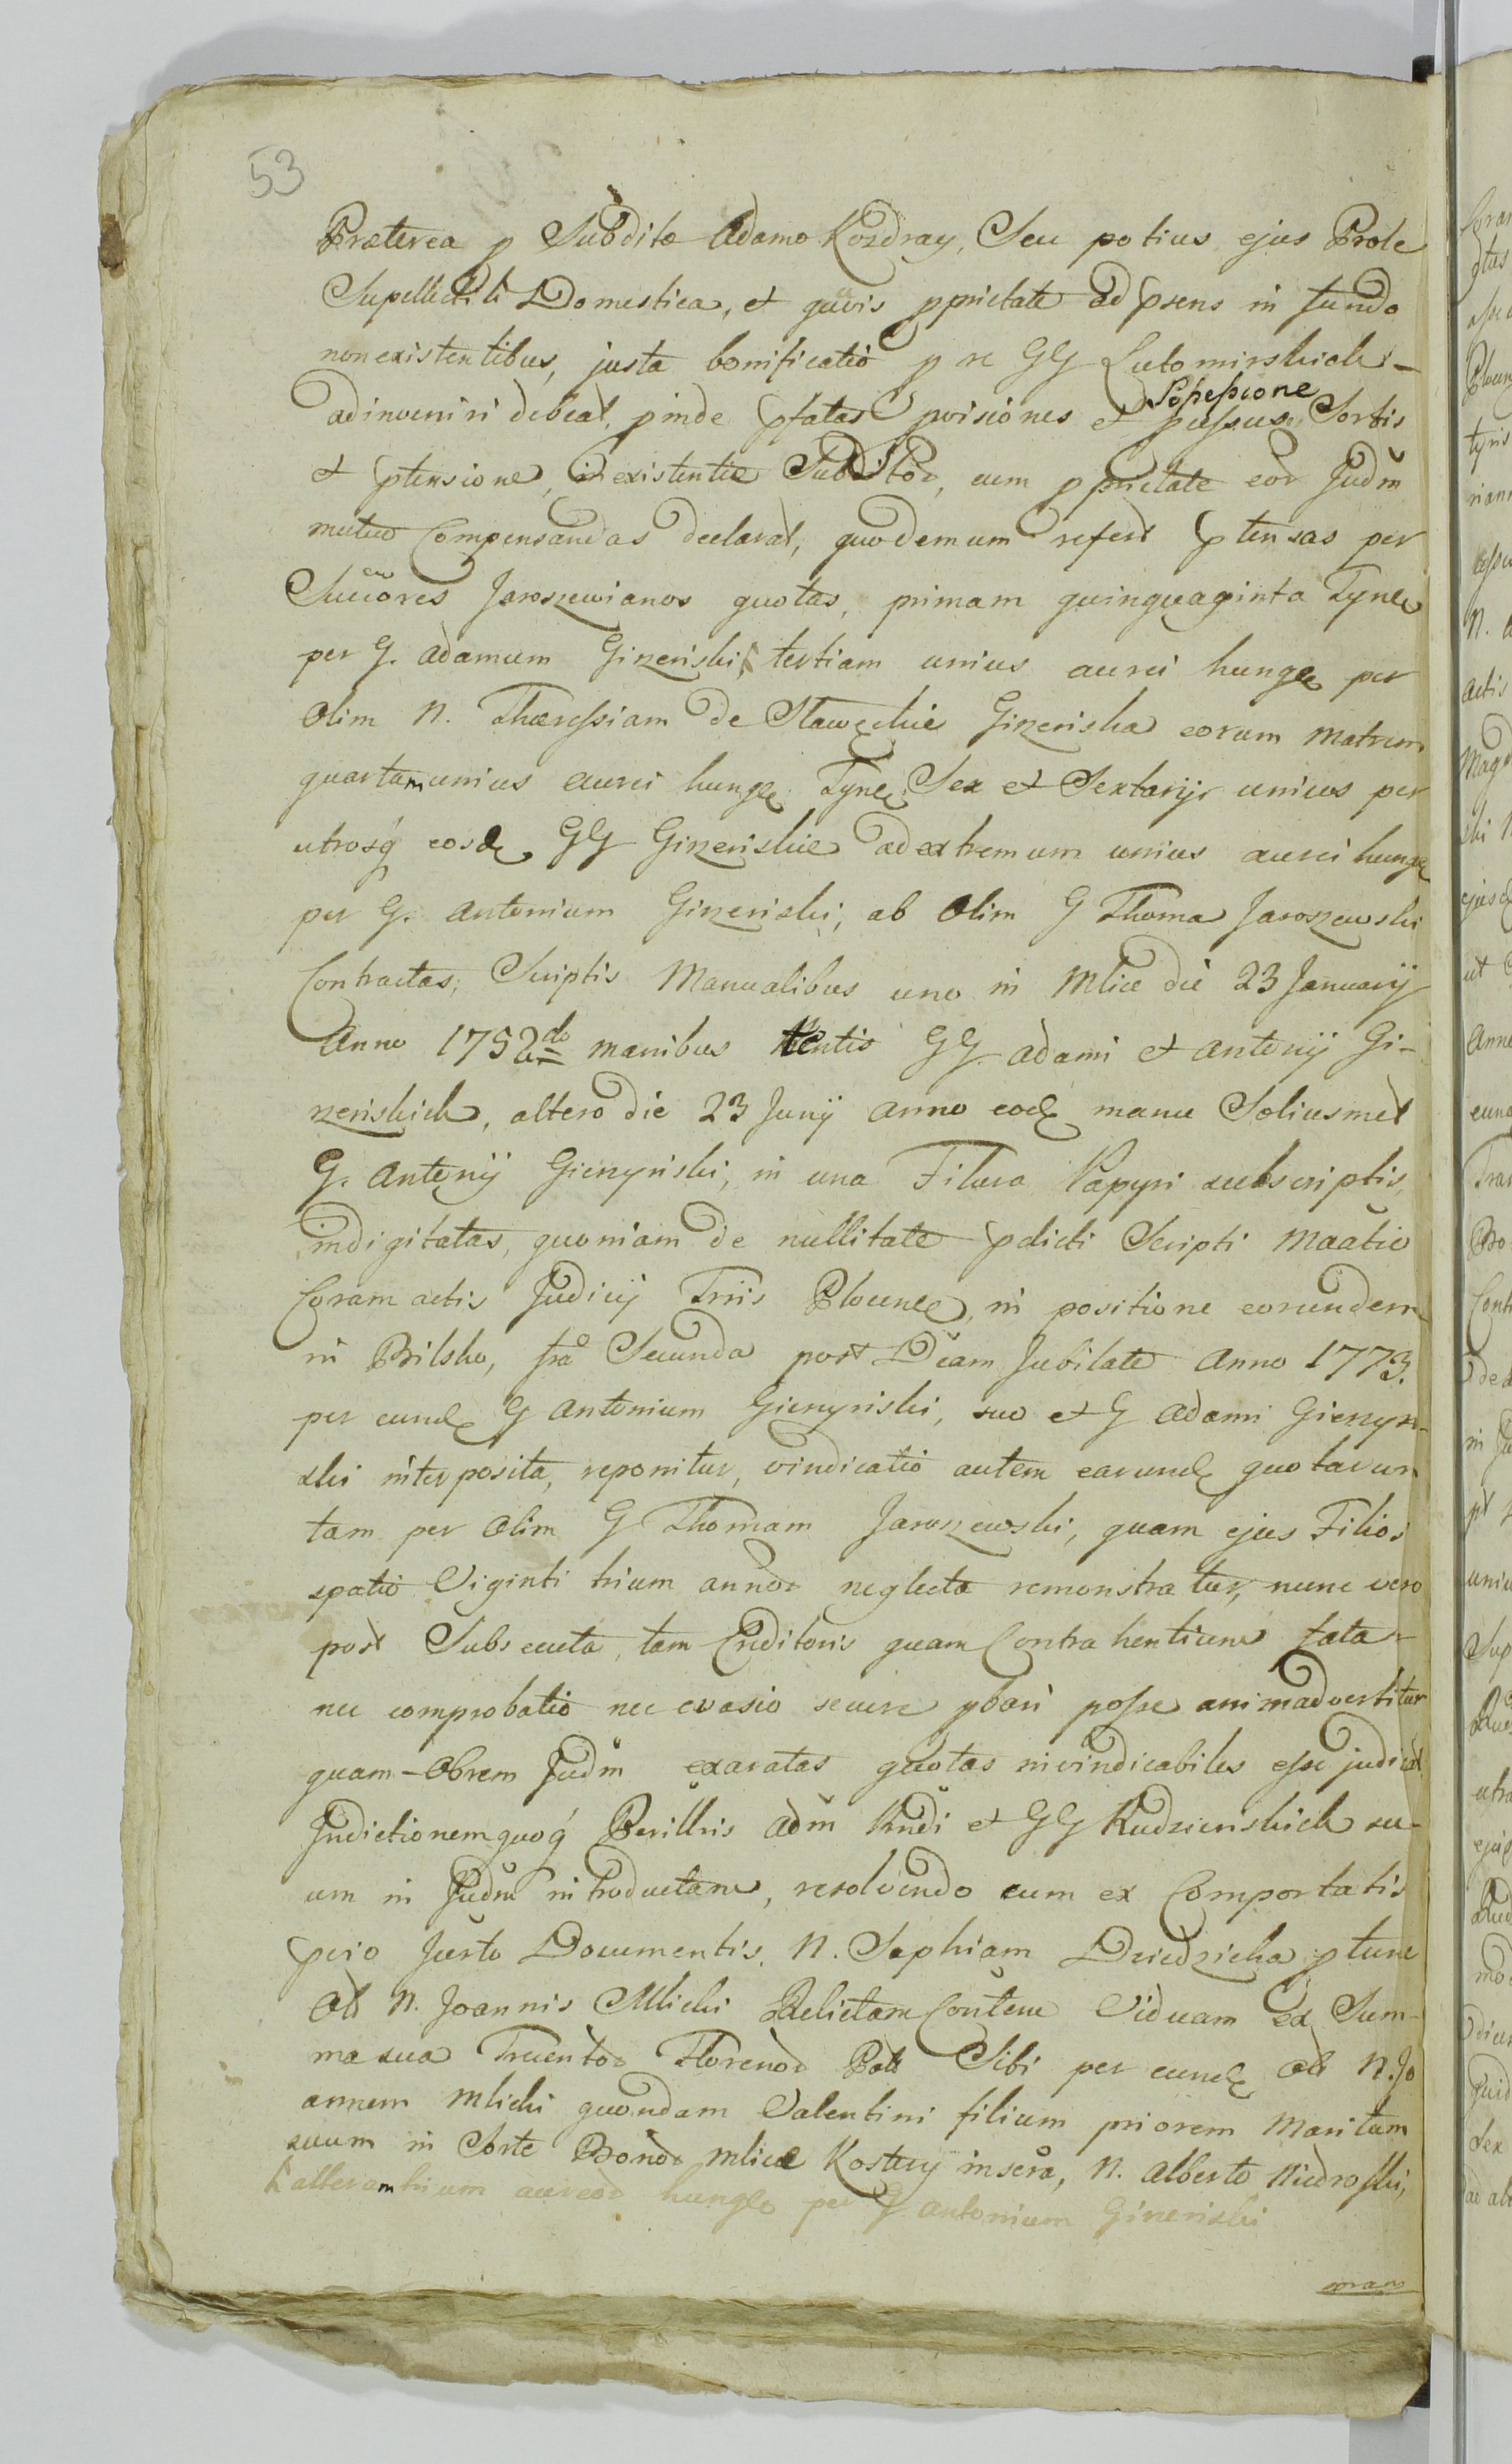 53
Præterea p Subdito Adamo Kozdray, Seu potius ejus Prole
Supellectili Domestica, et quävis pprietate ad psens in fundo
non existentibus, justa bonificatio p re GG Lutomirskich -
adinveniri debeat, pinde pfatas pvisiones et Sorbis
Possessione
et ptensione, inexistentie Subditor, cum pprietate eor Judm
mutuo Compensandas declarat, quodemum refert ptensas per
Successores Jaroszewianos quotas, primam quinquaginta Tynf
per G. Adamum Gizeński, tertiam unius aurei hung per
olim N. Theressiam de Staweckie Gizenska eorum Matrem
quartam unius aurei hung Tynf Sex et Sextarij unius per
utrosq eosd GG Gizenskie ad extremum unius aurei hung
per G. Antonium Gizeński, ab olim G Thoma Jaroszewski
Contractas, Scriptis Manualibus uno in Mlice die 23 January
Anno 1752do manibus GG Adami et Antonij Gi-
zeńskich, altero die 23 Junij anno eod manu Soliusmet
G. Antonij Gienzyński, in una Filura Papyri subscriptis,
indigitatas, quoniam de nullitate pdicti Scripti
Coram actis Judicij Trris Plocens, in positione eorundem
in Bilsko, fra Secunda post Dcam Jubilate Anno 1773.
per eund G Antonium Gienzyński, suo et G Adami Gienzyn-
ski interposita, reponitur, vindicatio autem earund quotarum
tam per olim G Thomam Jaroszewski, quam ejus Filios
spatio Viginti trium annor neglecta remonstratur, nunc vero
post Subsecuta, tam Creditoris quam Contrahentium fata -
nec comprobatio nec evasio secure pbari posse animadvertitur
quam-obrem Judm exaratas quotas invindicabiles esse judicat
Indictionem quoq Perillris Adm Rndi et GG Rudzienskich su-
um in Judm introductam, resolvendo cum ex Comportatis
pvio Jurto Documentis, N. Sophiam Dziedzicka p tunc
Ol N. Joannis Mlicki Relictam Viduam ex Sum-
ma sua Trecentor Florenor Pol Sibi per eund Ol N. Jo
annem Mlicki quondam Valentini filium priorem Maritum
suum in Sorte Bonor Mlice Kostery insera, N. Alberto
alteram trium aureor hung per G Antonium Gizeński